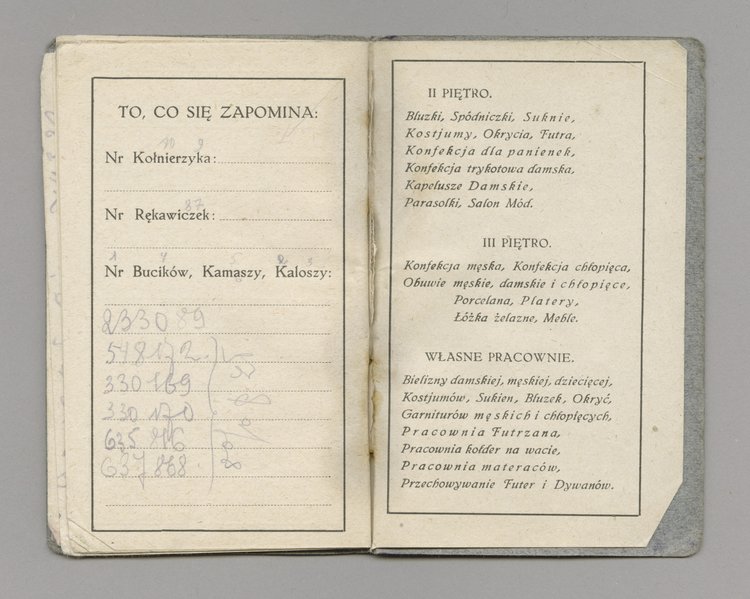 TO, CO SIĘ ZAPOMINA:
Nr Kołnierzyka:
Nr Rękawiczek:
Nr Bucików, Kamaszy, Kaloszy:
233089
330169
330170
II PIĘTRO.
Bluzki, Spódniczki, Suknie,
Kostjumy, Okrycia, Futra,
Konfekcja dla panienek,
Konfekcja trykotowa damska,
Kapelusze Damskie,
Parasolki, Salon Mód.
III PIĘTRO.
Konfekcja męska, Konfekcja chłopięca,
Obuwie męskie, damskie i chłopięce,
Porcelana, Platery,
Łóżka żelazne, Meble.
WŁASNE PRACOWNIE.
Bielizny damskiej, męskiej, dziecięcej,
Kostjumów, Sukien, Bluzek, Okryć,
Garniturów męskich i chłopięcych,
Pracownia Futrzana,
Pracownia kołder na wacie,
Pracownia materaców,
Przechowywanie Futer i Dywanów.